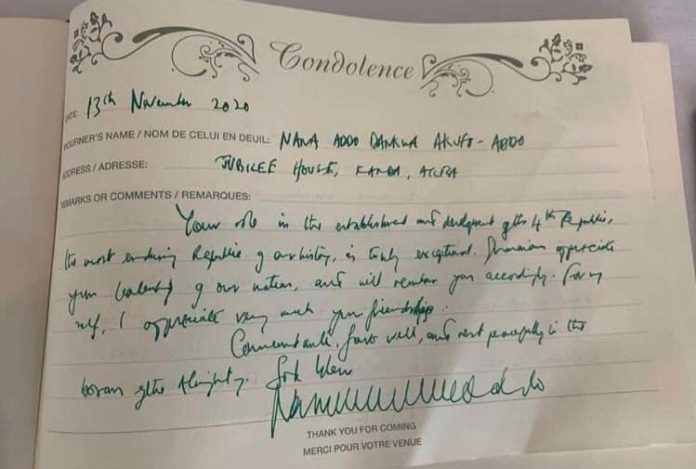 Condolence
DATE 13th November 2020
MOURNER'S NAME / NOM DE CELUI EN DEUIL: NANA ADDO DANKWA AKUFO-ADDO
ADDRESS / ADRESSE: JUBILEE HOUSE, KANDA, ACCRA
REMARKS OR COMMENTS / REMARQUES:
Your role in the established and development of the 4th Republic,
the most enduring Republic of our history, is truly exceptional. Ghanaians appreciate
your leadership of our nation, and will remember you accordingly. For my
self, I appreciate very much your friendship.
Commandante, fare well, and rest peacefully in the
bosom of the Almighty. God bless
THANK YOU FOR COMING
MERCI POUR VOTRE VENUE